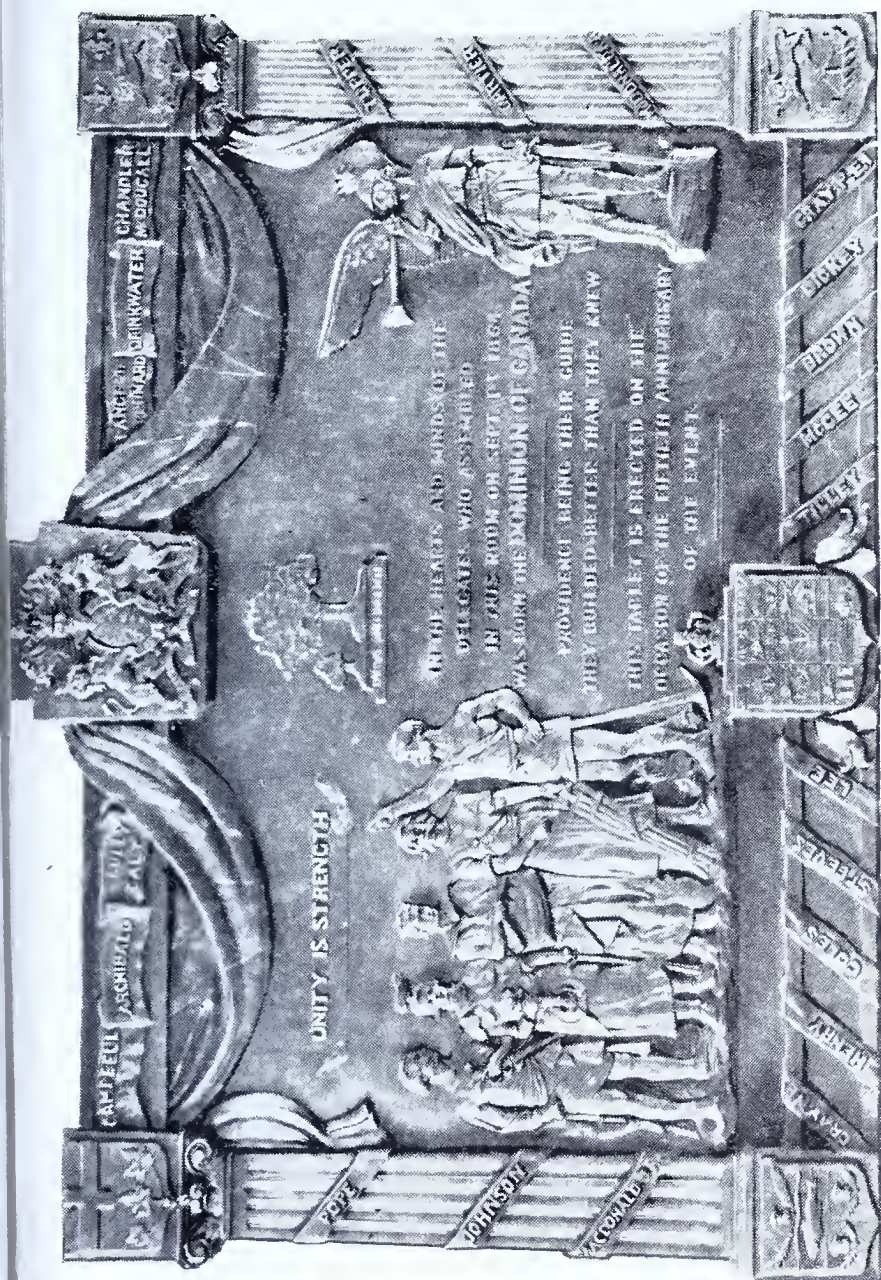 CAMPBELL
ARCHIBALD
GALT
LANGEVIN
BERNARD
DRINKWATER
CHANDLER
McDOUGALL
UNITY IS STRENGTH
IN THE HEARTS AND MINDS OF THE
DELEGATES WHO ASSEMBLED
IN THIS ROOM ON SEPT. 1ST 1864
WAS BORN THE DOMINION OF CANADA
PROVIDENCE BEING THEIR GUIDE
THEY BUILDED BETTER THAN THEY KNEW
THIS TABLET IS ERECTED ON THE
OCCASION OF THE FIFTIETH ANNIVERSARY
OF THE EVENT.
POPE
JOHNSON
MACDONALD J.
PALMER
GRAY
HENRY
COLES
STEEVES
TILLEY
McGEE
BROWN
DICKEY